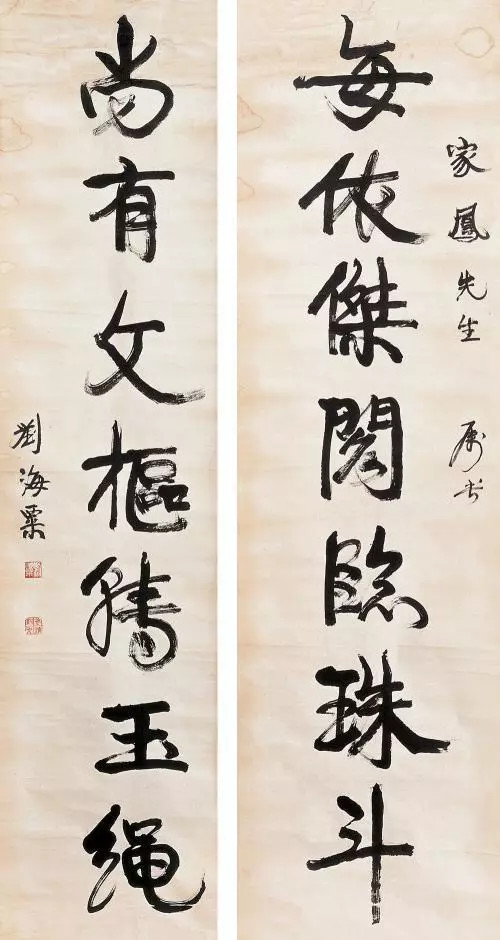 家鳳先生 属书
每依傑閣臨珠斗
尚有文樞騰玉绳
劉海粟